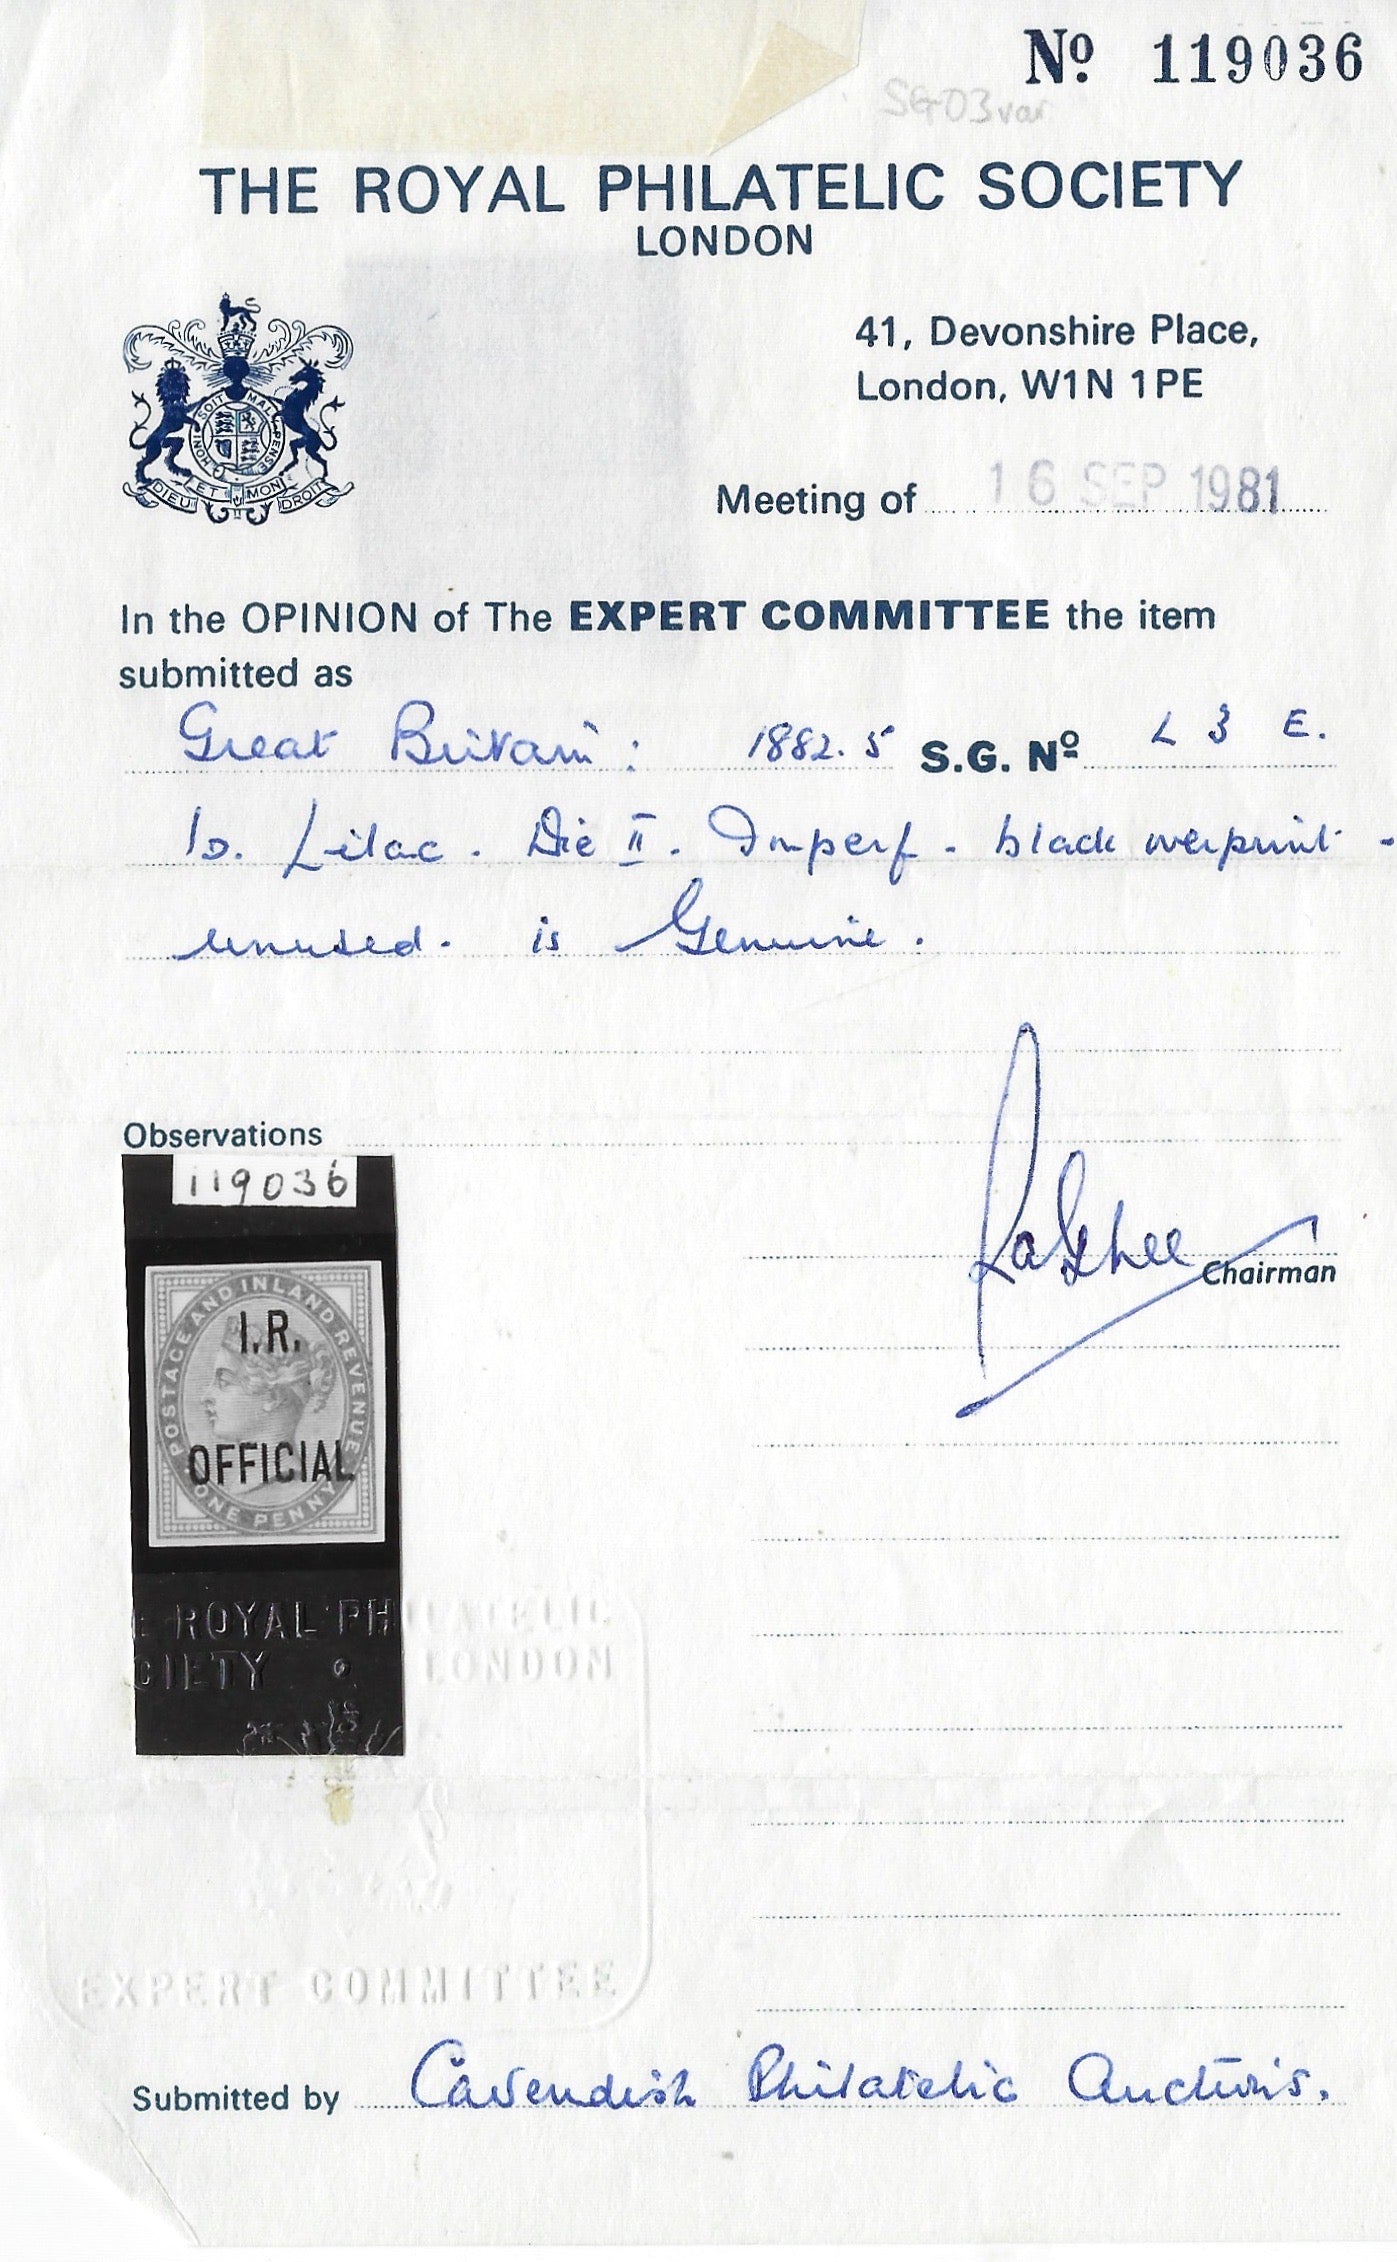 Nº 119036
SG O3 var
THE ROYAL PHILATELIC SOCIETY
LONDON
HONI SOIT MAL PENSE
DIEU ET MON DROIT
41, Devonshire Place,
London, W1N 1PE
Meeting of 16 SEP 1981
In the OPINION of The EXPERT COMMITTEE the item
submitted as
Great Britain: 1882.5 S.G. Nº L 3 E.
1d. Lilac. Die II. Imperf - black overprint -
unused. is Genuine.
Observations
119036
POSTAGE AND INLAND REVENUE
I.R.
OFFICIAL
ONE PENNY
Chairman
E ROYAL PHILATELIC
CIETY LONDON
EXPERT COMMITTEE
Submitted by Cavendish Philatelic Auctions.